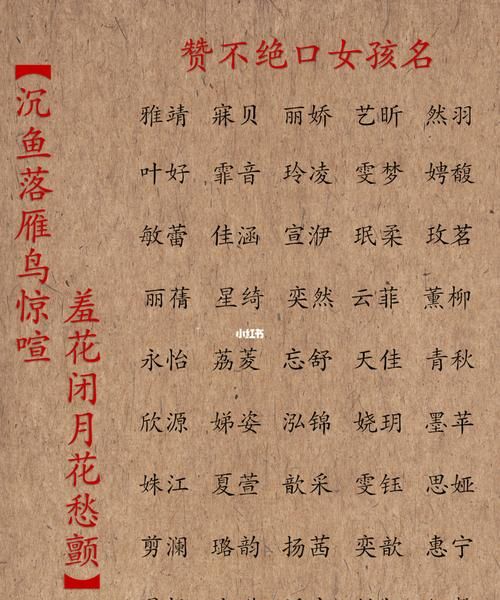 赞不绝口女孩名
【沉鱼落雁鸟惊喧
羞花闭月花愁颤】
雅靖 寐贝 丽娇 艺昕 然羽
叶好 霏音 玲凌 雯梦 娉馥
敏蕾 佳涵 宣洢 珉柔 玫茗
丽蒨 星绮 奕然 云菲 薰柳
小红书
永怡 荔菱 忘舒 天佳 青秋
欣源 娣姿 泓锦 娆玥 墨苹
姝江 夏萱 歆采 雯钰 思娅
剪澜 璐韵 扬茜 奕歆 惠宁